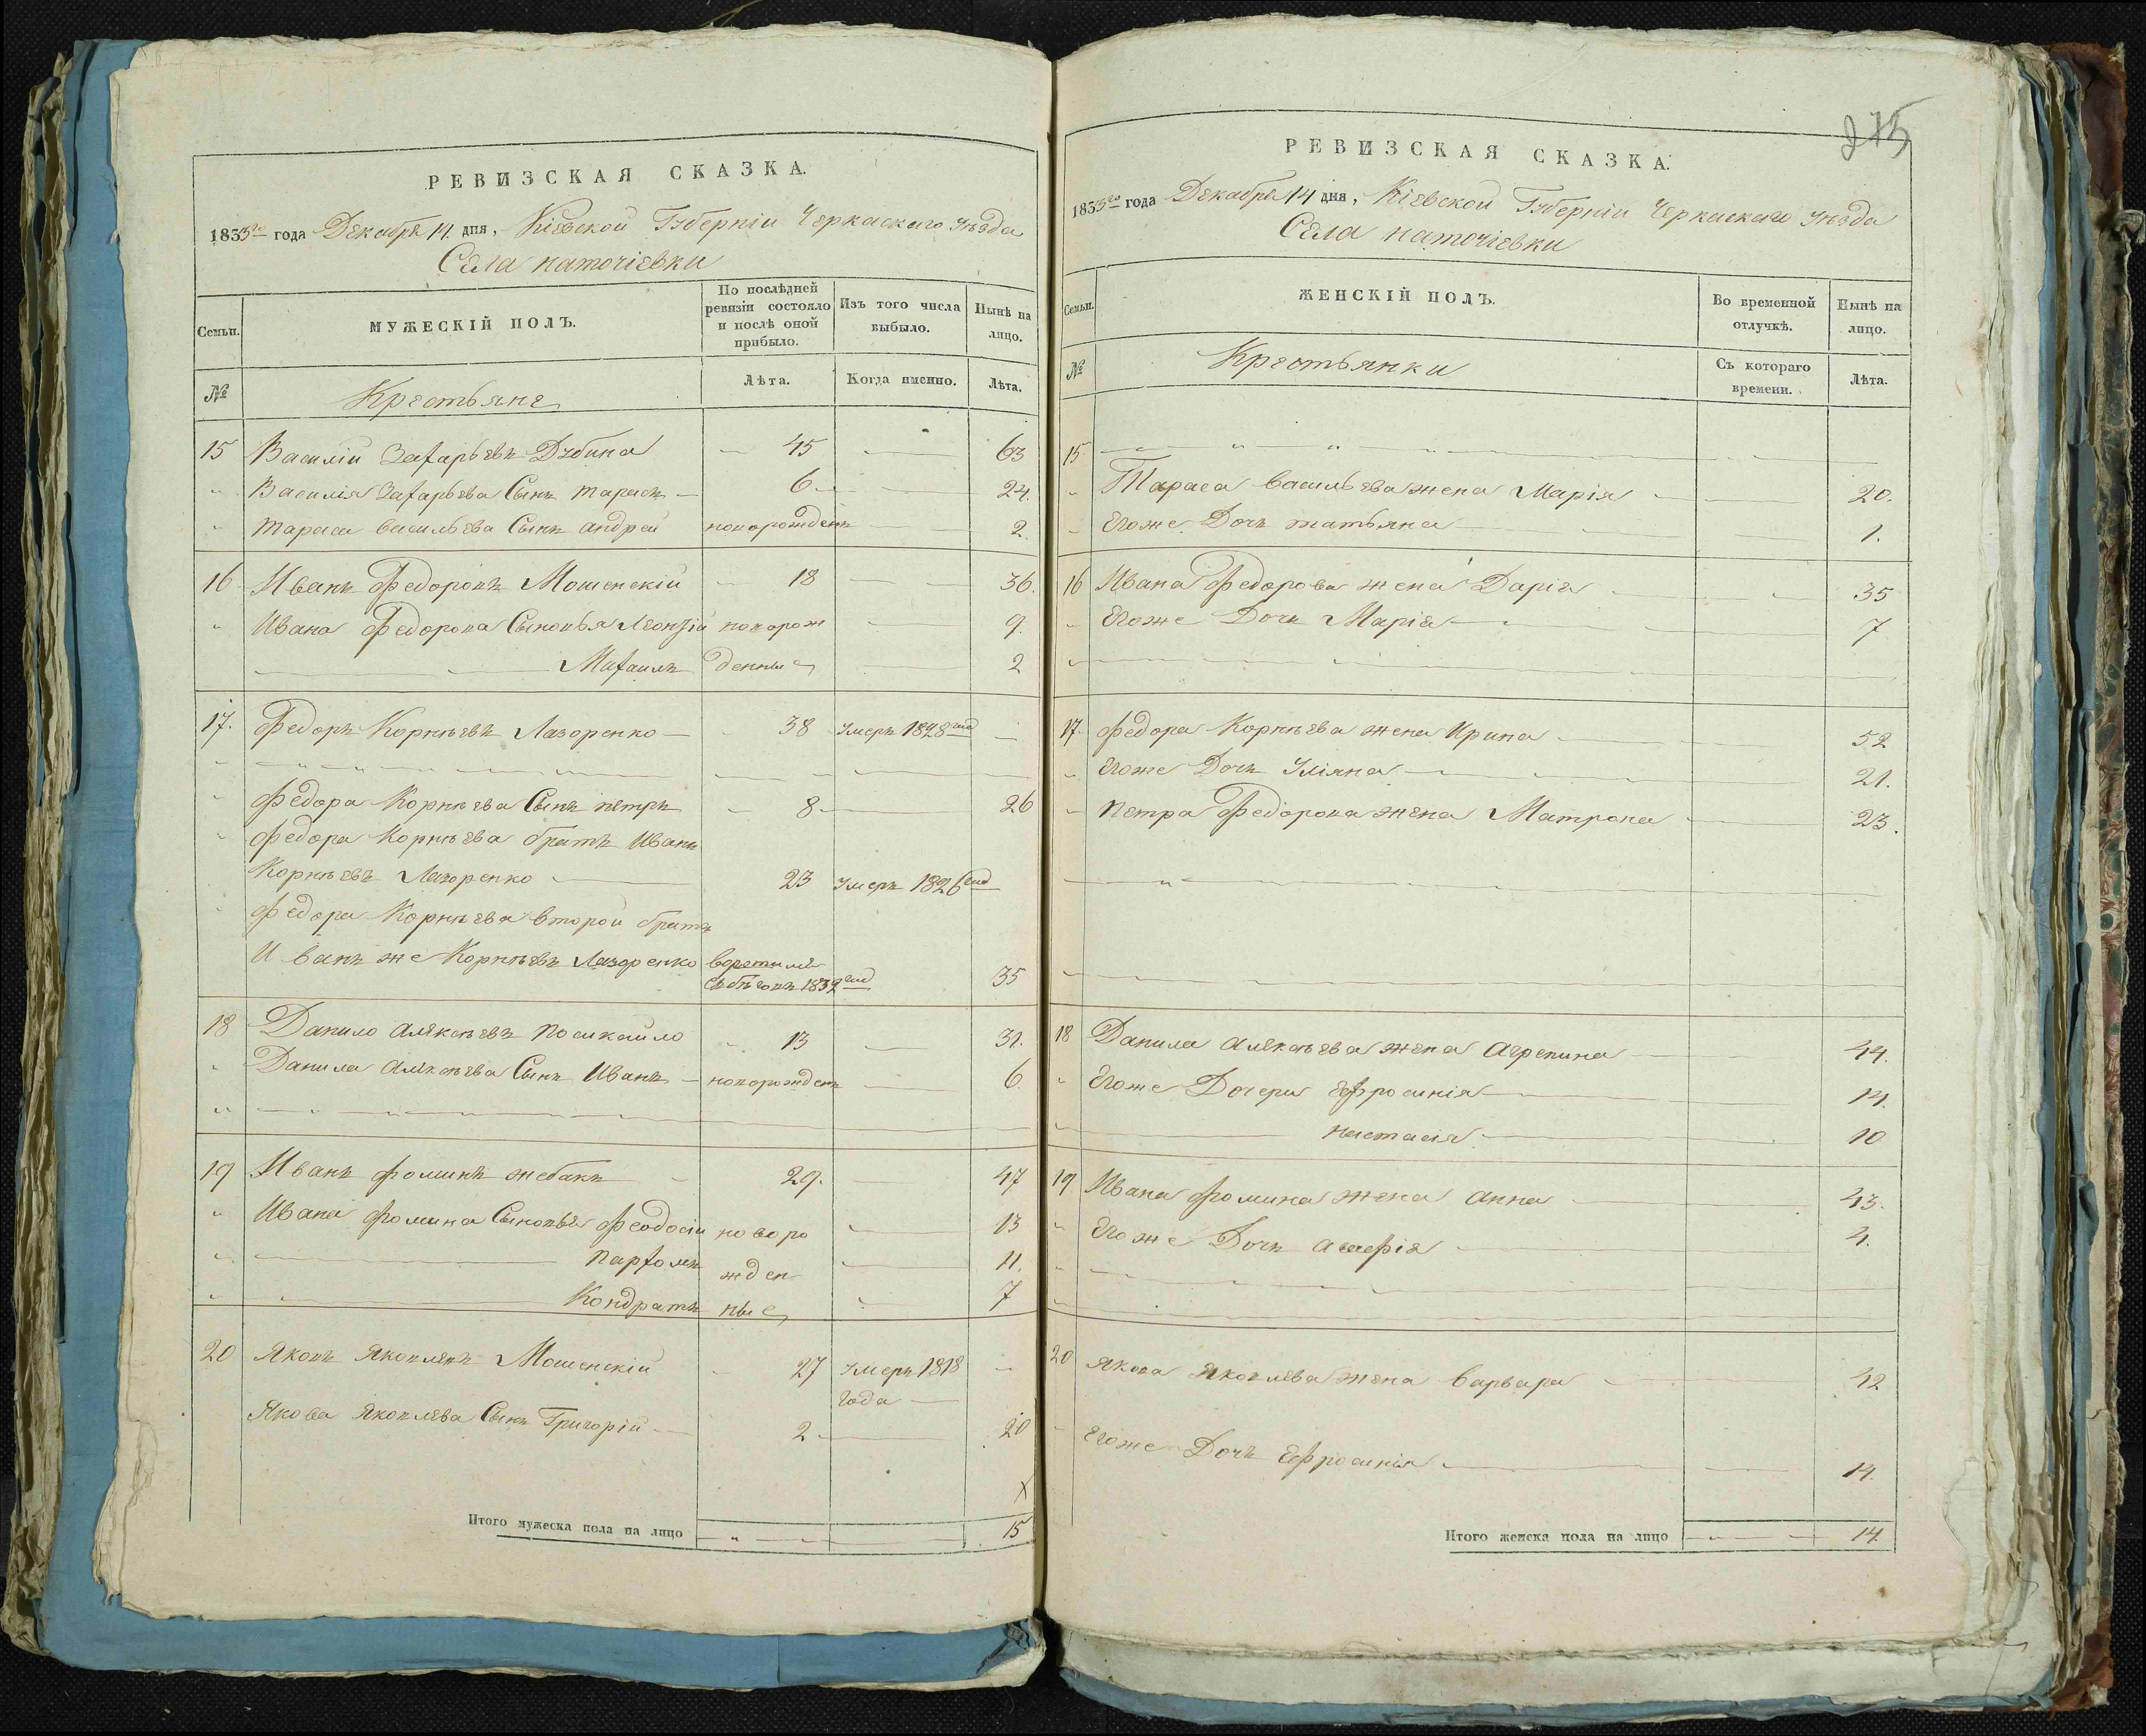 РЕВИЗСКАЯ СКАЗКА.
1835го года Декабря 14 дня, Кіевской Губерніи Черкаскаго уезда
Села
Семьи.
МУЖЕСКІЙ ПОЛЪ.
По послѣдней ревизіи состояло и послѣ оной прибыло.
Изъ того числа выбыло.
Нынѣ на лицо.
№
Крестьяне
Лѣта.
Когда именно.
Лѣта.
15 Василій Захарьевъ Дубина 45 63
Василія Захарьева Сынъ тарасъ 6 24.
тараса васильева Сынъ андрей новорожденъ 2.
16 Иванъ Федоровъ Мошенскій 18 36.
Ивана Федорова Сыновья Леонтій новорож 9.
Михаилъ денные 2
17. Федоръ Корнѣевъ Лазоренко 38 умеръ 1828 год
Федора Корнѣева Сынъ петръ 8 26
Федора Корнѣева братъ Иванъ
Корнѣевъ Лазоренко 23 умеръ 1826 год
Федора Корнѣева второй братъ
Иванъ же Корнѣевъ Лазоренко 35
1832 год
18 Данило алексѣевъ 13 31.
Данила алексѣева Сынъ Иванъ новорожденъ 6.
19 Иванъ фоминъ жебакъ 29. 47
Ивана фомина Сыновья феодосій новоро 13
парфомъ жден 11.
Кондратъ ные 7
20 Яковъ Яковлевъ Мошенскій 27 умеръ 1818
года
Якова Яковлева Сынъ Григорій 2 20
Х
Итого мужеска пола на лицо 15
275
РЕВИЗСКАЯ СКАЗКА.
1835го года Декабря 14 дня, Кіевской Губерніи Черкаскаго уезда
Села
Семьи.
ЖЕНСКІЙ ПОЛЪ.
Во временной отлучкѣ.
Нынѣ на лицо.
№
Крестьянки
Съ котораго времени.
Лѣта.
15
Тараса васильева жена Марія 20.
Егоже Дочь татьяна 1.
16 Ивана Федорова жена Дарія 35
Егоже Дочь Марія 7
17. Федора Корнѣева жена Ирина 52
Егоже Дочь Уліяна 21.
Петра Федорова жена Матрона 23.
18 Данила алексѣева жена агрепина 44.
Егоже Дочери Ефросинія 14.
настасія 10
19 Ивана фомина жена анна 43.
Егоже Дочь 4.
20 Якова Яковлева жена варвара 42
Егоже Дочь Ефросинія 14.
Итого женска пола на лицо 14